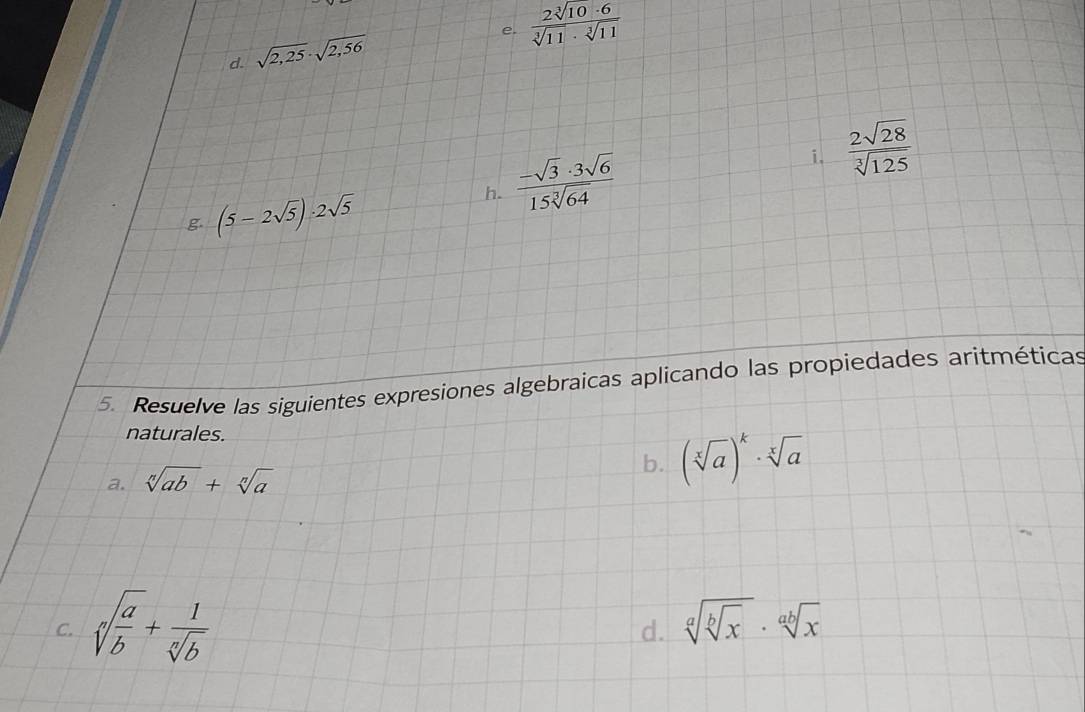 d. √2,25 · √2,56
e. (2∛10 · 6)/(∛11 · ∛11)
g. (5 − 2√5) · 2√5
h. (−√3 · 3√6)/(15∛64)
i. (2√28)/(∛125)
5. Resuelve las siguientes expresiones algebraicas aplicando las propiedades aritméticas
naturales.
a. ⁿ√(ab) + ⁿ√a
b. (ˣ√a)ᵏ · ˣ√a
c. ⁿ√(a/b) + 1/(ⁿ√b)
d. ᵃ√(ᵇ√x) · ᵃᵇ√x